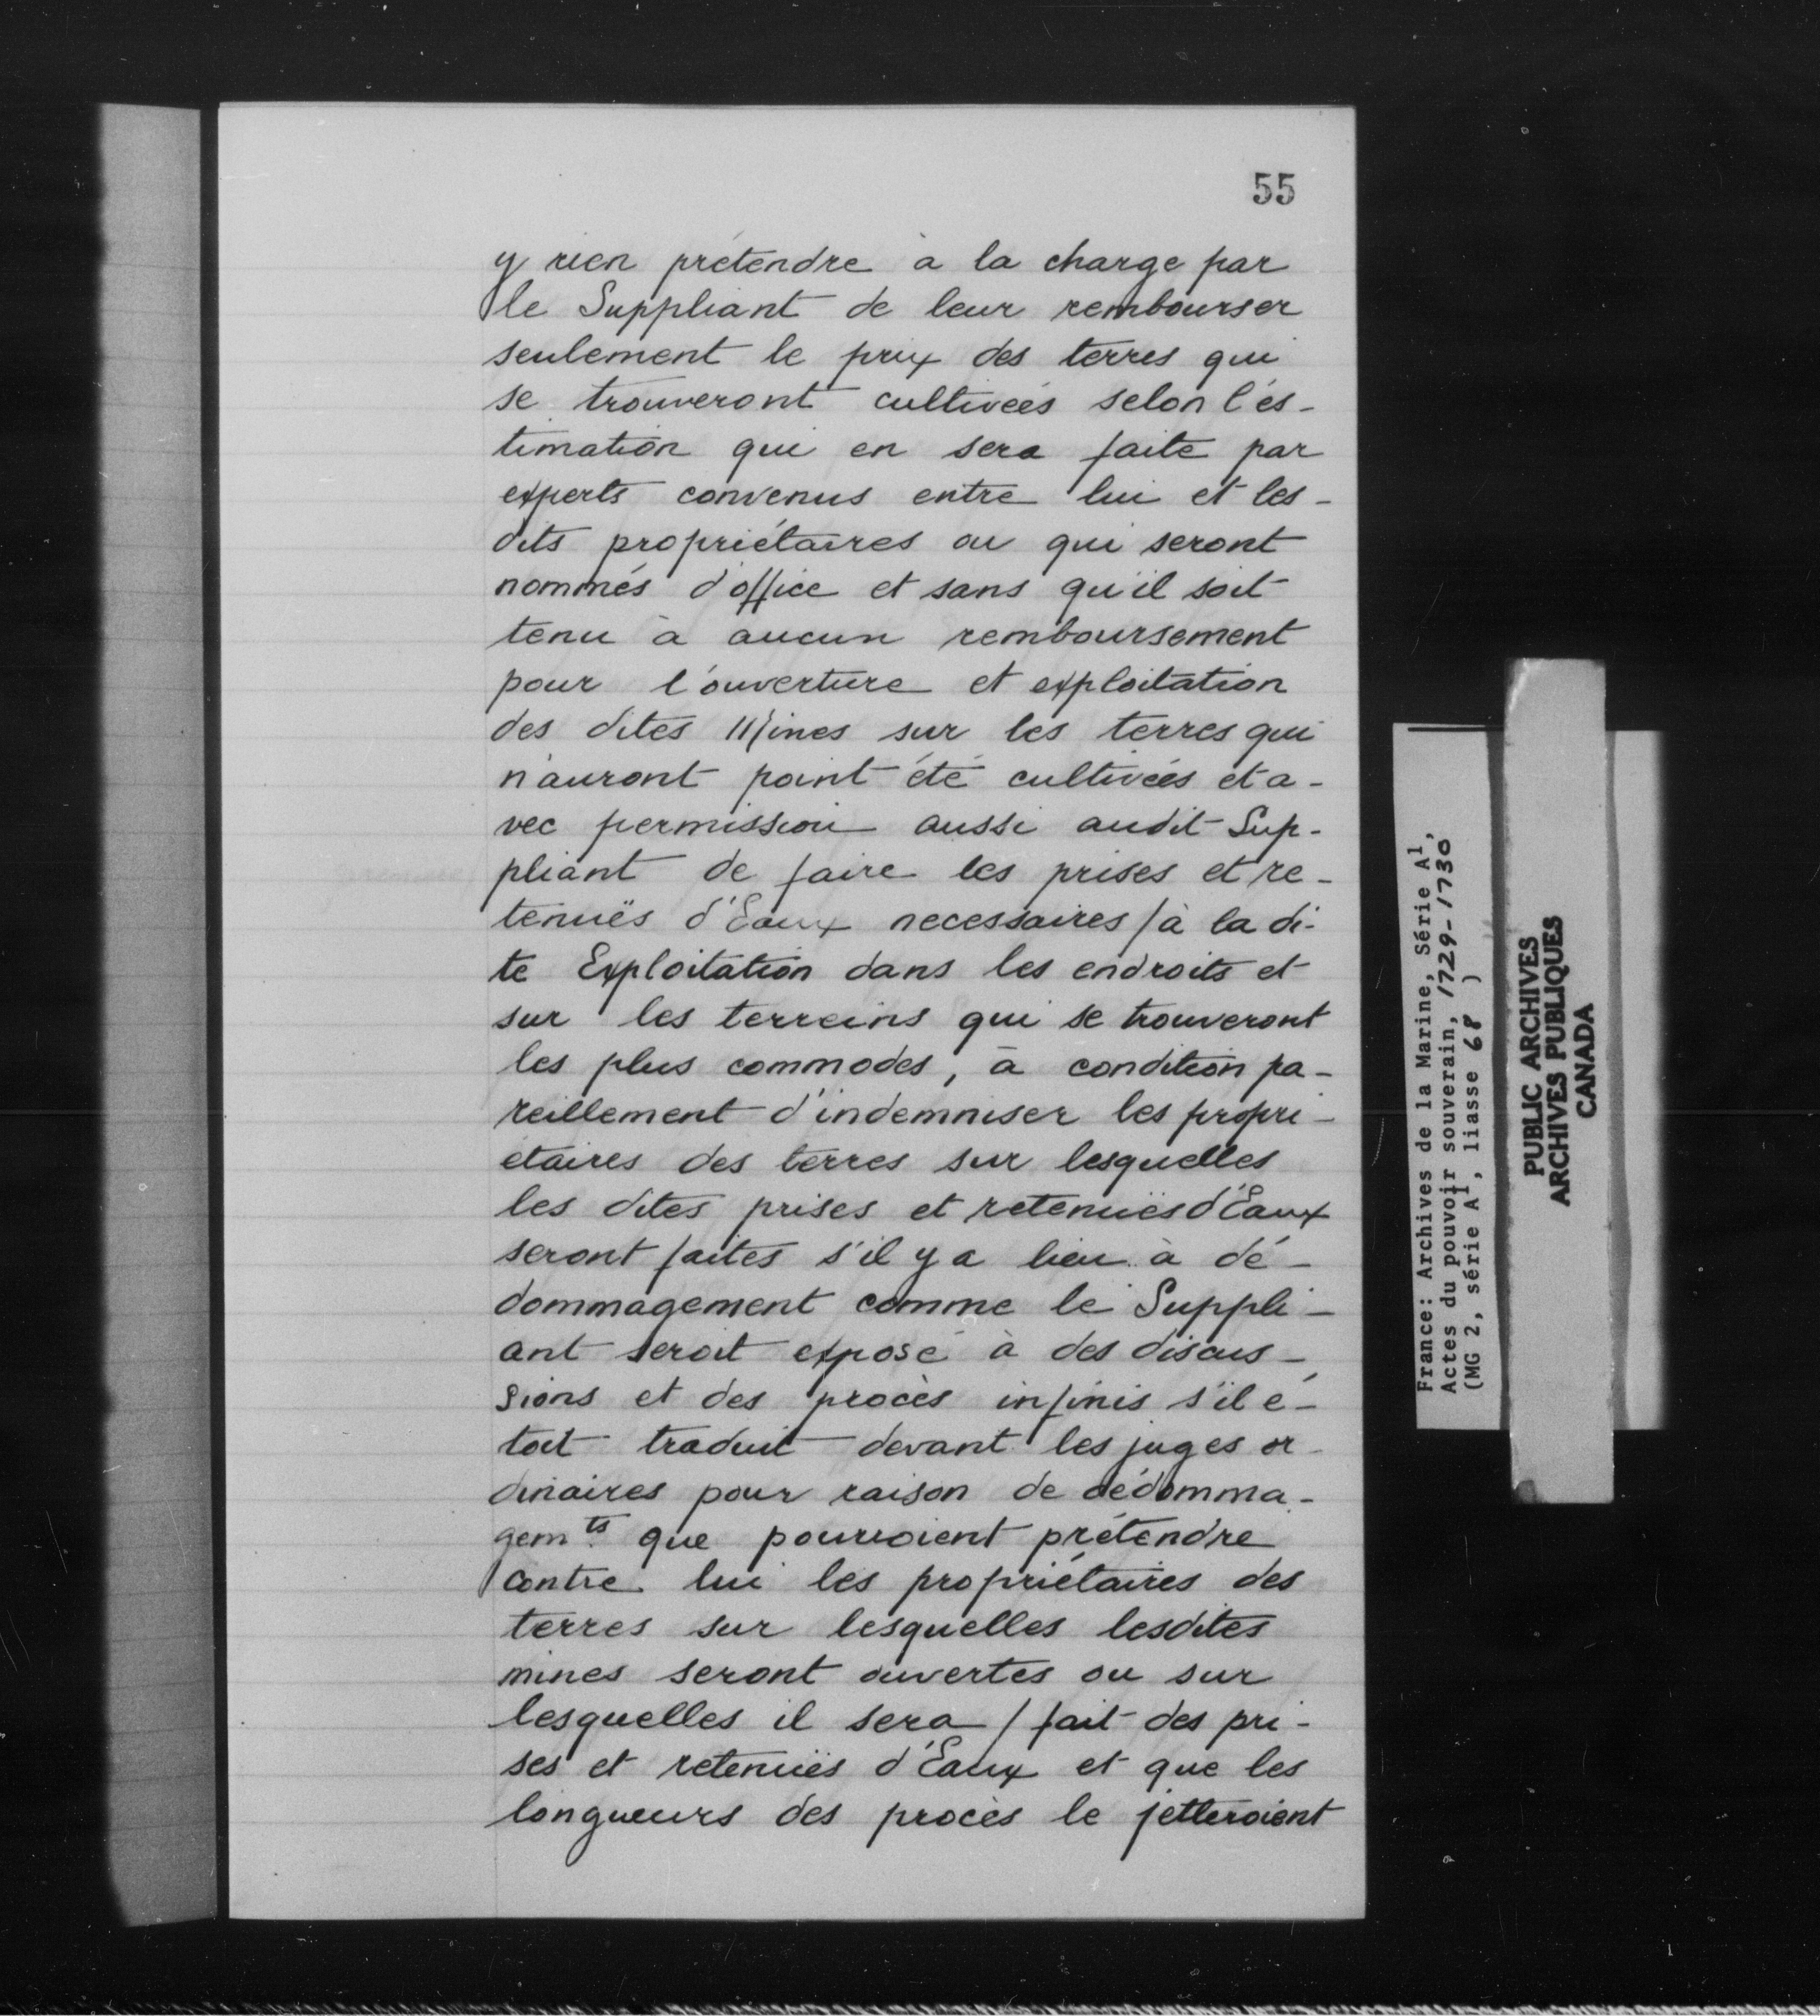 55
y rien prétendre à la charge par
le Suppliant de leur rembourser
seulement le prix des terres qui
se trouveront cultivées selon l'és-
timation qui en sera faite par
experts convenus entre lui et les-
dits propriétaires ou qui seront
nommés d'office et sans qu'il soit
tenu à aucun remboursement
pour l'ouverture et exploitation
des dites Mines sur les terres qui
n'auront point été cultivées et a-
vec permission aussi audit Sup-
pliant de faire les prises et re-
tenuës d'Eaux necessaires / à la di-
te Exploitation dans les endroits et
sur les terreins qui se trouveront
les plus commodes, à condition pa-
reillement d'indemniser les propri-
étaires des terres sur lesquelles
les dites prises et retenuës d'Eaux
seront faites s'il y a lieu à dé-
dommagement comme le Suppli-
ant seroit exposé à des discus-
sions et des procès infinis s'il é-
toit traduit devant les juges or-
dinaires pour raison de dédomma-
gem.ts que pourroient prétendre
contre lui les propriétaires des
terres sur lesquelles lesdites
mines seront ouvertes ou sur
lesquelles il sera / fait des pri-
ses et retenuës d'Eaux et que les
longueurs des procès le jetteroient
France: Archives de la Marine, Série A1,
Actes du pouvoir souverain, 1729-1730
(MG 2, série A1, liasse 68 )
PUBLIC ARCHIVES
ARCHIVES PUBLIQUES
CANADA